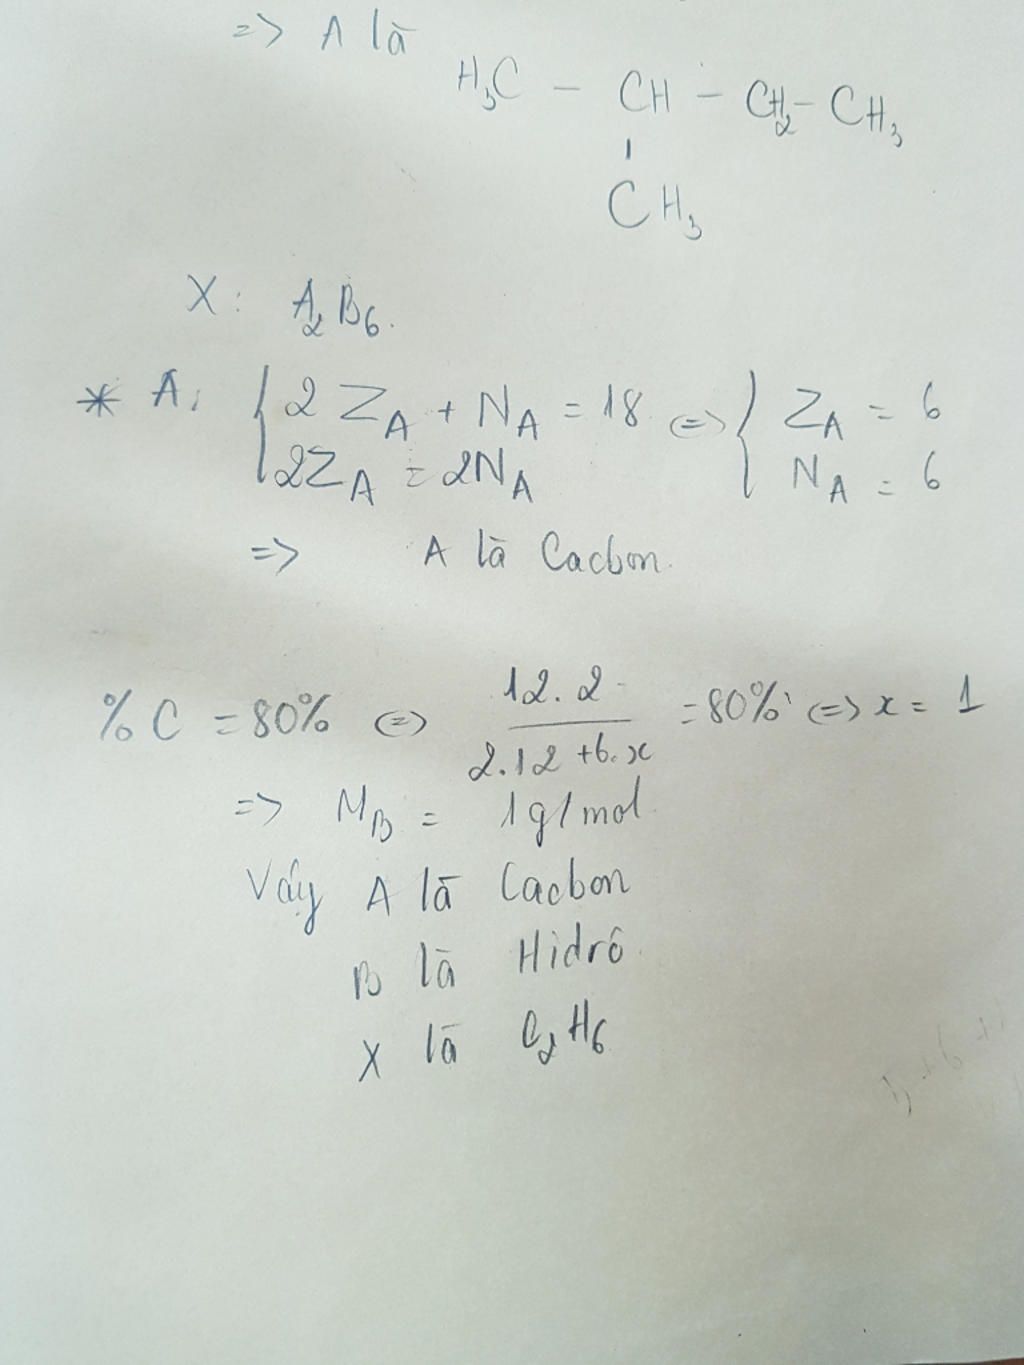 => A là
H₃C – CH – CH₂ – CH₃
|
CH₃
X: A₂B₆.
* A: { 2 Z_A + N_A = 18 <=> { Z_A = 6
2Z_A = 2N_A N_A = 6
=> A là Cacbon.
% C = 80% <=> 12.2 / 2.12 + 6.x = 80% <=> x = 1
=> M_B = 1g/mol
Vậy A là Cacbon
B là Hiđrô
X là C₂H₆